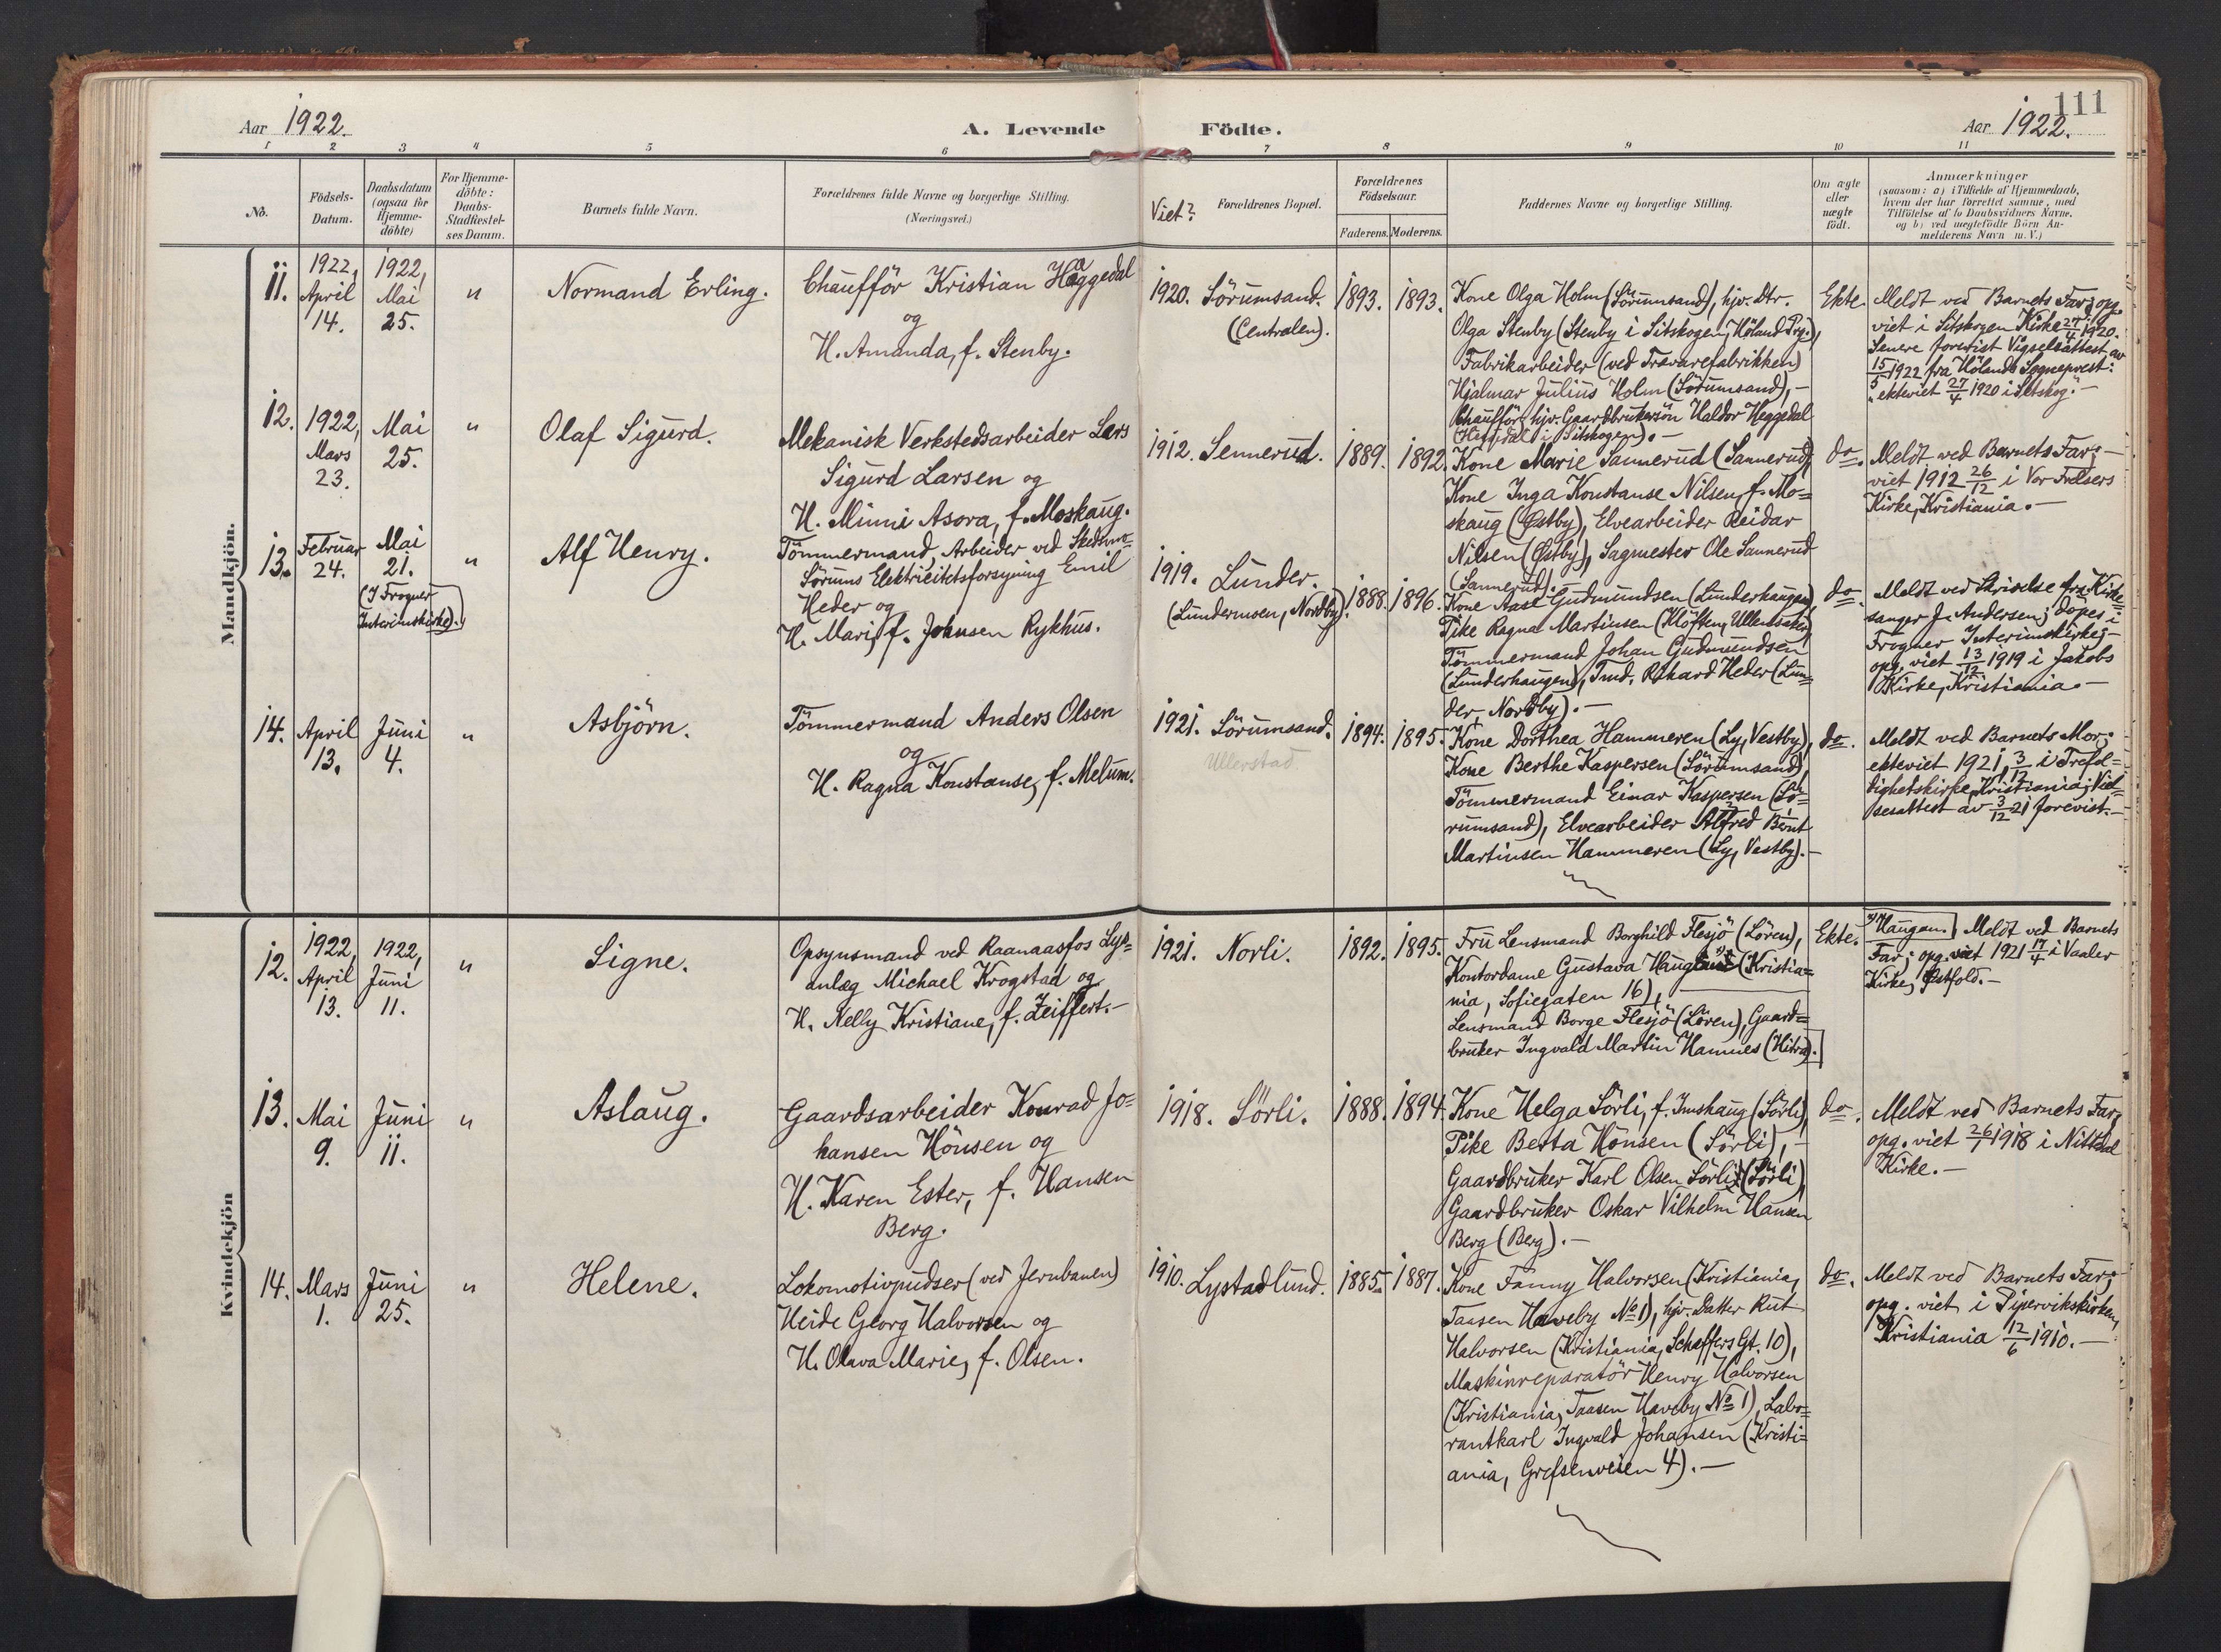 111
Aar 1922.
A. Levende Födte.
Aar 1922.
1 2 3 4 5 6 7 8 9 10 11
No.
Födsels-
Datum.
Daabsdatum
(ogsaa for
Hjemme-
döbte)
For Hjemme-
döbte:
Daabs-
Stadfæstel-
ses Datum.
Barnets fulde Navn.
Forældrenes fulde Navne og borgerlige Stilling.
(Næringsvei.)
Viet?
Forældrenes Bopæl.
Forældrenes
Födselsaar.
Faderens. Moderens.
Faddernes Navne og borgerlige Stilling.
Om ægte
eller
uægte
födt.
Anmærkninger
(saasom: a) i Tilfælde af Hjemmedaab,
hvem der har forrettet samme, med
Tilföielse af to Daabsvidners Navne,
og b) ved uegtefödte Börn An-
melderens Navn m. V.)
Mandkjön.
11.
1922,
April
14.
1922,
Mai
25.
"
Normand Erling.
Chaufför Kristian Haggedal
og
H. Amanda, f. Stenby.
1920.
Sörumsand.
(Centralen).
1893.
1893.
Kone Olga Holm (Sörumsand), hjv. Dtr.
Olga Stenby (Stenby i Sitskogen, Höland Prgj.),
Fabrikarbeider (ved Trævarefabrikken)
Hjalmar Julius Holm (Sörumsand), –
Chaufför, hjv. Gaardbrukersön Haldor Heggedal
(Heggedal i Sitskogen). –
Ekte.
Meldt ved Barnets Far; opg.
viet i Sitskogen Kirke 27/4 1920.
Senere forevist Vigselsattest av
15/5 1922 fra Hölands Sogneprest:
"ekteviet 27/4 1920 i Setskog". –
12.
1922,
Mars
23.
Mai
25.
"
Olaf Sigurd.
Mekanisk Verkstedsarbeider Lars
Sigurd Larsen og
H. Minni Asora, f. Moskaug.
1912.
Sennerud.
1889.
1892.
Kone Marie Sannerud (Sannerud),
Kone Inga Konstanse Nilsen, f. Mo=
skaug (Østby), Elvearbeider Reidar
Nilsen (Østby), Sagmester Ole Sannerud
(Sannerud).
do.
Meldt ved Barnets Far; –
viet 1912 26/12 i Vor Frelsers
Kirke, Kristiania. –
13.
Februar
24.
Mai
21.
(I Frogner
Interimskirke).
"
Alf Henry.
Tömmermand, Arbeider ved Skedsmo=
Sörums Elektricitetsforsyning Emil
Heder og
H. Mari, f. Johnsen Rykhus.
1919.
Lunder.
(Lundermoen, Nordby).
1888.
1896.
Kone Aase Gudmundsen (Lunderhaugen),
Pike Ragna Martinsen (Klöften, Ullensaker),
Tömmermand Johan Gudmundsen
(Lunderhaugen), Tmd. Rikard Heder (Lun=
der, Nordby). –
do.
Meldt ved Skrivelse fra Kirke=
sanger J. Andersen; döpes i
Frogner Interimskirke; –
opg. viet 13/12 1919 i Jakobs
Kirke, Kristiania. –
14.
April
13.
Juni
4.
"
Asbjörn.
Tömmermand Anders Olsen
og
H. Ragna Konstanse, f. Melum.
1921.
Sörumsand.
Ullerstad
1894.
1895.
Kone Dorthea Hammeren (Ly, Vestby),
Kone Berthe Kaspersen (Sörumsand),
Tömmermand Einar Kaspersen (Sö=
rumsand), Elvearbeider Alfred Bernt
Martinsen Hammeren (Ly, Vestby). –
do.
Meldt ved Barnets Mor;
ekteviet 1921, 3/12 i Trefol=
dighetskirke, Kristiania; Viel=
sesattest av 3/12 21 forevist. –
Kvindekjön
12.
1922,
April
13.
1922,
Juni
11.
"
Signe.
Opsynsmand ved Raanaasfos Lys=
anlæg Michael Krogstad og
H. Kelly Kristiane, f. Zeiffert. –
1921.
Norli.
1892.
1895.
Fru Lensmand Borghild Flesjö (Lören),
Kontordame Gustava Haugland (Kristia=
nia, Sofiegaten 16),
Lensmand Borge Flesjö (Lören), Gaard=
bruker Ingvald Martin Hamnes (Hitra).
Ekte.
Haugan. Meldt ved Barnets
Far; opg. viet 1921 17/4 i Vaaler
Kirke, Østfold. –
13.
Mai
9.
Juni
11.
"
Aslaug.
Gaardsarbeider Konrad Jo=
hansen Hönsen og
H. Karen Ester, f. Hansen
Berg.
1918.
Sörli.
1888.
1894.
Kone Helga Sörli, f. Imshaug (Sörli),
Pike Berta Hönsen (Sörli), –
Gaardbruker Karl Olsen Sörli (Sörli),
Gaardbruker Oskar Vilhelm Hansen
Berg (Berg). –
do.
Meldt ved Barnets Far,
opg. viet 26/1 1918 i Nittedal
Kirke. –
14.
Mars
1.
Juni
25.
"
Helene.
Lokomotivpudser (ved Jernbanen)
Heide Georg Halvorsen og
H. Olava Marie, f. Olsen.
1910.
Lystadlund.
1885.
1887.
Kone Fanny Halvorsen (Kristiania,
Taasen Haveby No 1), hjv. Datter Rut
Halvorsen (Kristiania, Scheffers Gt. 10),
Maskinreparatör Henry Halvorsen
(Kristiania, Taasen Haveby No 1), Labo=
rantkarl Ingvald Johansen (Kristi=
ania, Grefsenveien 4). –
do.
Meldt ved Barnets Far;
opg. viet i Pipervikskirken,
Kristiania 12/6 1910. –